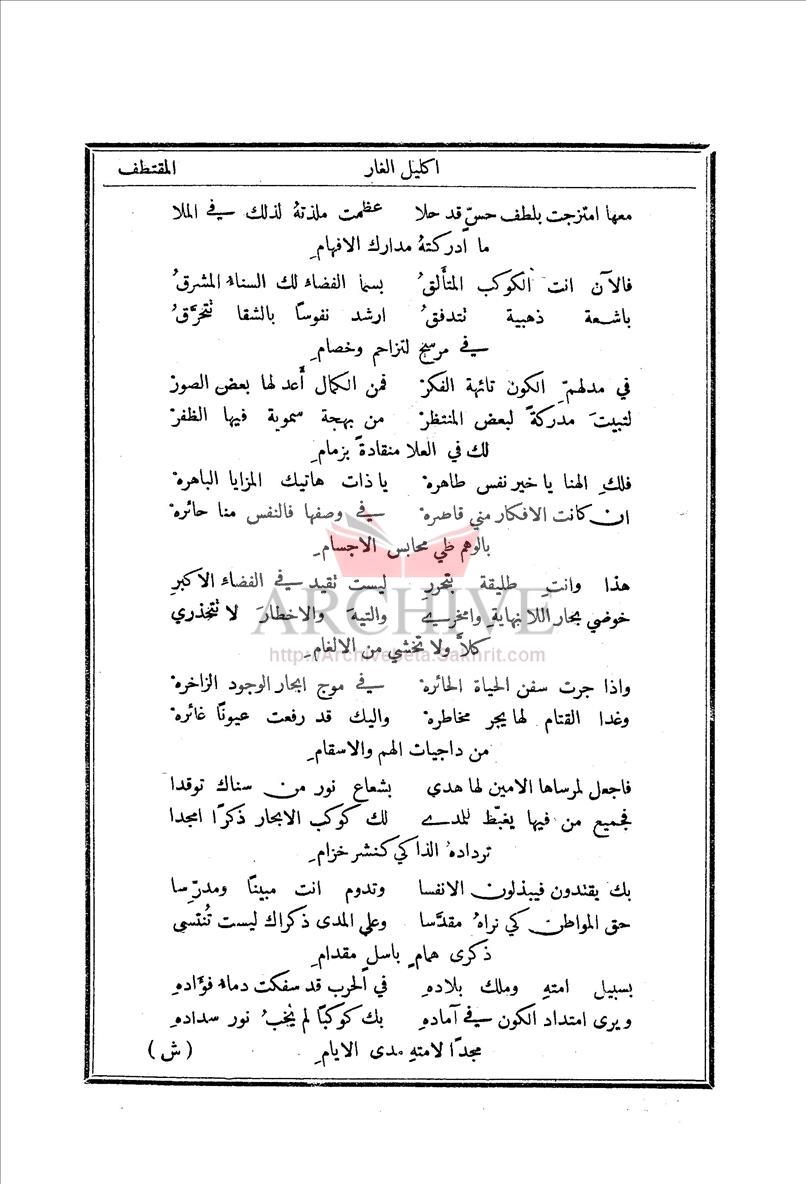 المقتطف اكليل الغار
معها امتزجت بلطف حسّ قد حلا عظمت ملذتهُ لذلك في الملا
ما أدركتهُ مدارك الافهام ِ
فالآن انت الكوكب المتألقُ بسما الفضاء لك السناء المشرقُ
باشعة ذهبية تتدفقُ ارشد نفوسًا بالشقا تتحرَّقُ
في مرسح لتزاحم وخصام ِ
في مدلهمّ الكون تائهة الفكرْ فمن الكمال أعد لها بعض الصورْ
لتبيتَ مدركةً لبعض المنتظرْ من بهجة سموية فيها الظفرْ
لك في العلا منقادةً بزمام ِ
فلكِ الهنا يا خير نفس طاهره يا ذات هاتيك المزايا الباهره
ان كانت الافكار مني قاصره في وصفها فالنفس منا حائره
بالوهم طي محابس الاجسام ِ
هذا وانتِ طليقة بتحررِ ليست تقيد في الفضاء الاكبرِ
خوضي بحار اللانهايةِ وامخري والتيهَ والاخطارَ لا تتحذري
كلاَّ ولا تخشي من الالغام ِ
ARCHIVE
http://Archivebeta.Sakhrit.com
واذا جرت سفن الحياة الحائره في موج ابحار الوجود الزاخره
وغدا القتام لها يجر مخاطره واليك قد رفعت عيونًا غائره
من داجيات الهم والاسقام ِ
فاجعل لمرساها الامين لها هدى بشعاع نور من سناك توقدا
فجميع من فيها يغبّط للمدى لك كوكب الابحار ذكرًا امجدا
تردادهُ الذاكي كنشر خزام ِ
بك يقتدون فيبذلون الانفسا وتدوم انت مبينًا ومدرّسا
حق المواطن كي نراهُ مقدَّسا وعلى المدى ذكراك ليست تُنتسى
ذكرى همامٍ باسلٍ مقدام ِ
بسبيل امتهِ وملك بلادهِ في الحرب قد سفكت دماء فؤادهِ
ويرى امتداد الكون في آمادهِ بك كوكبًا لم يُخبُ نور سدادهِ
مجدًا لامتهِ مدى الايام ِ (ش)